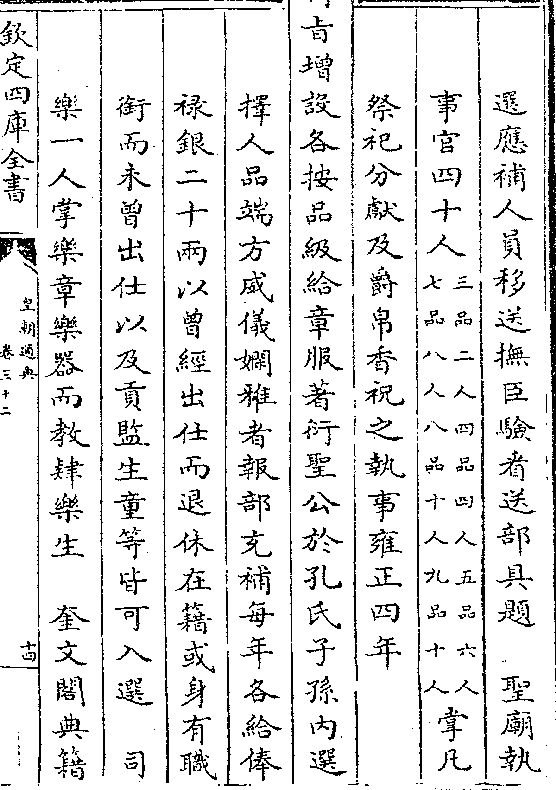 選應補人員移送撫臣驗看送部具題　聖廟執
事官四十人三品二人四品四人五品六人七品八人八品十人九品十人掌凡
祭祀分獻及爵帛香祝之執事雍正四年
旨增設各按品級給章服著衍聖公於孔氏子孫內選
擇人品端方威儀嫻雅者報部充補每年各給俸
祿銀二十兩以曾經出仕而退休在籍或身有職
銜而未曾出仕以及貢監生童等皆可入選　司
樂一人掌樂章樂器而教肄樂生　奎文閣典籍
欽定四庫全書
皇朝通典
卷三十二
十四